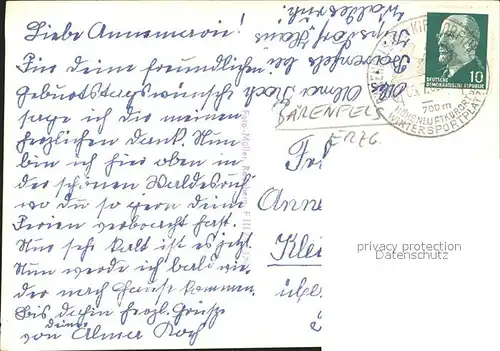 Liebe Annemarie!
Für deine freundlichen
Geburtstagswünsche
sage ich dir meinen
herzlichen Dank. Nun
bin ich hier oben in
der schönen Waldesruh
wo du so gern deine
Ferien verbracht hast.
Nur sehr kalt ist es jetzt.
Nun werde ich bald wie-
der nach Hause kommen.
Bis dahin herzl. Grüße
von deiner Alma Koch
Alma Koch
Bärenfels bei
Kipsdorf Haus
Waldesruh.
BÄRENFELS
ERZG.
DEUTSCHE
DEMOKRATISCHE REPUBLIK
10
700 m
WINTERSPORTPLATZ
Fr
Anne
Klei
über
privacy protection
Datenschutz